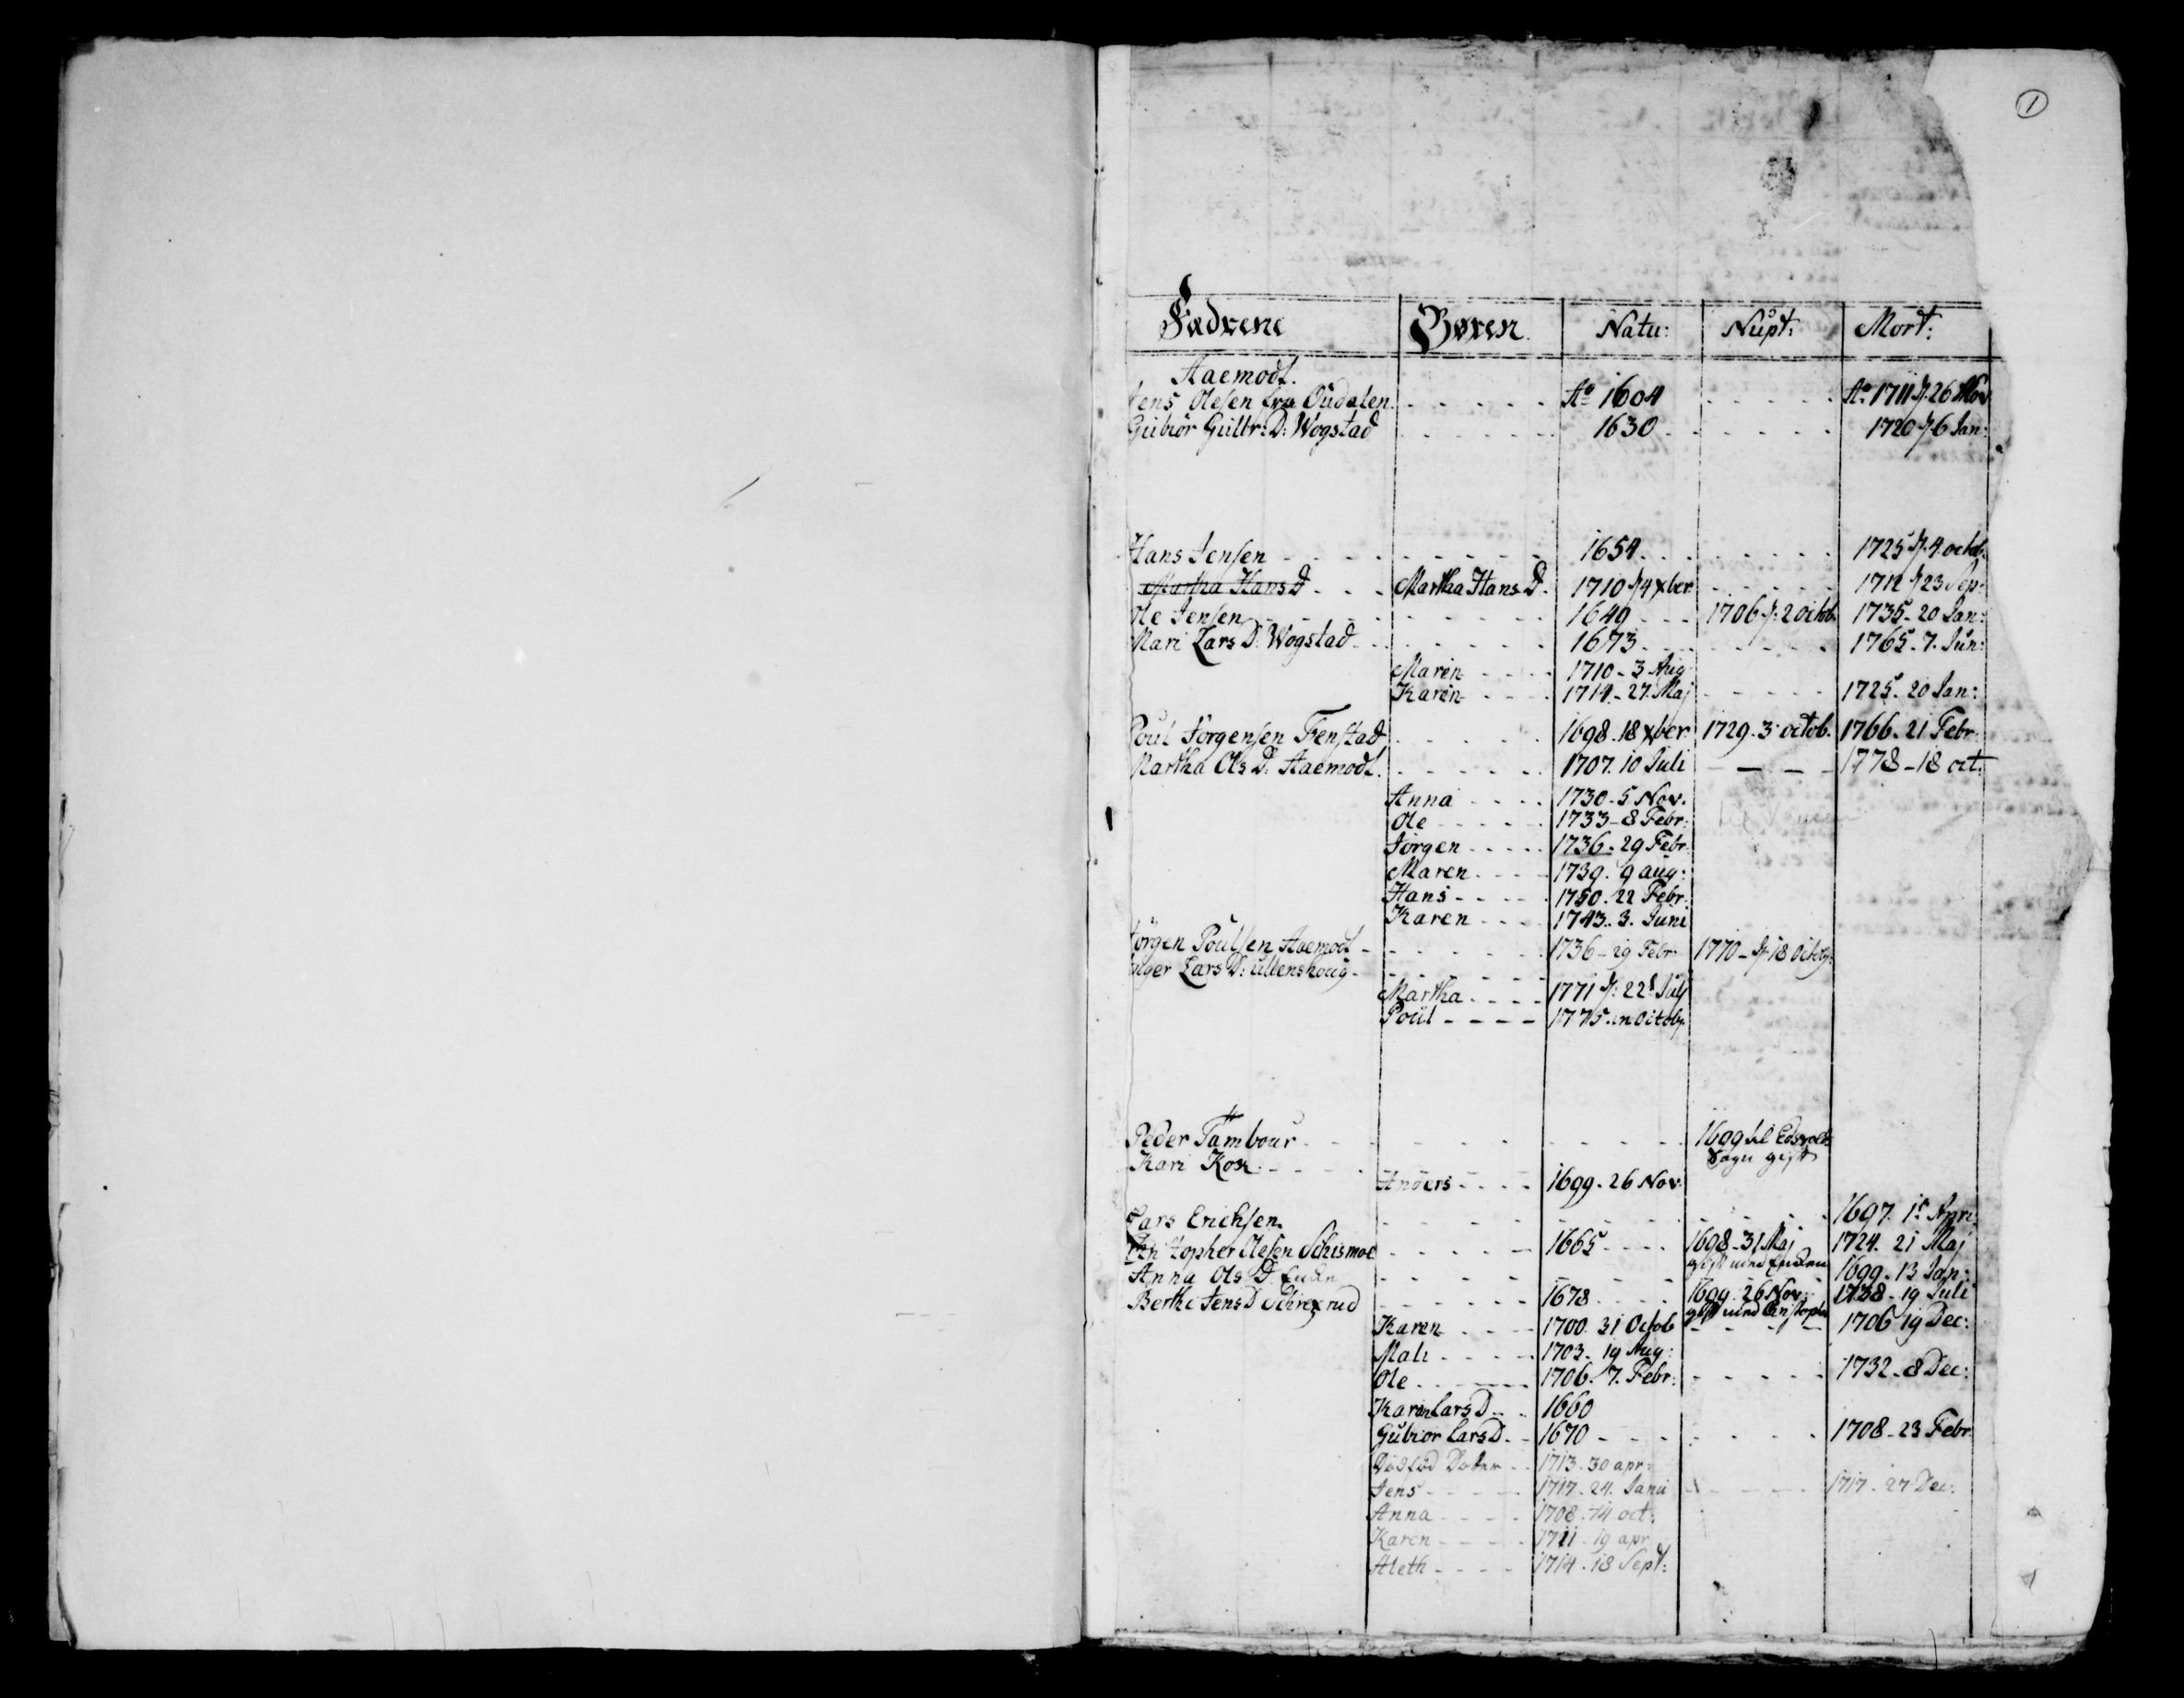 1
Fædrene Børen Natu: Nupt: Mort:
Aaemodt.
Jens Olesen fra Oudalen Ao 1604 Ao 1711 26 Nov
Gubiør Gulbr: D: Wogstad 1630 1720 6 Jan:
Hans Jensen 1654 1725 4 octob.
Martha Hans D Martha Hans D. 1710 4 xber 1712 23 Sep:
Ole Jensen 1649 1706 2 octob. 1735 - 20 Jan:
Mari Lars D: Wogstad 1673 1765. 7. Jun:
Maren 1710 - 3 Aug
Karen 1714 - 27. Maj 1725. 20 Jan:
Poul Jørgensen Fenstad 1698. 18 xber 1729. 3 octob. 1766. 21 Febr:
Martha Ols D: Aaemodt. 1707. 10 Juli 1778 - 18 oct.
Anna 1730 - 5 Nov.
Ole 1733 - 8 Febr:
Jørgen 1736 - 29 Febr.
Maren 1739. 9 aug:
Hans 1750. 22 Febr:
Karen 1743. 3. Juni
Jørgen Poulsen Aaemodt 1736 - 29 Febr. 1770 - 18 Octbr:
Inger Lars D: Ullenshoug
Martha 1771 22 July
Poul 1775. in Octobr.
Peder Tambour 1699 til Edsvolds
Kari Kok Sogn gift
Anders 1699. 26 Nov.
Lars Erichsen 1697. 1 Apri:
Christopher Olesen Schismoe 1665 1698 - 31 Maj 1724. 21 Maj
gift med Enken
Anna Ols D. Enke 1699. 13 Jan:
Berthe Jens D Schrexrud 1678 1699. 26 Nov: 1738 - 19 Juli
gift med Christopher
Karen 1700. 31 Octob 1706 19 Dec:
Mali 1703. 19 Aug:
Ole 1706. 7. Febr: 1732. 8 Dec:
Karen Lars D 1660
Gubiør Lars D. 1670 1708 - 23 Febr
Dødfød Datter 1713. 30 apr:
Jens 1717. 24. Janu 1717. 27 Dec:
Anna 1708. 14 oct:
Karen 1711. 19 apr
Aleth 1714. 18 Sept: